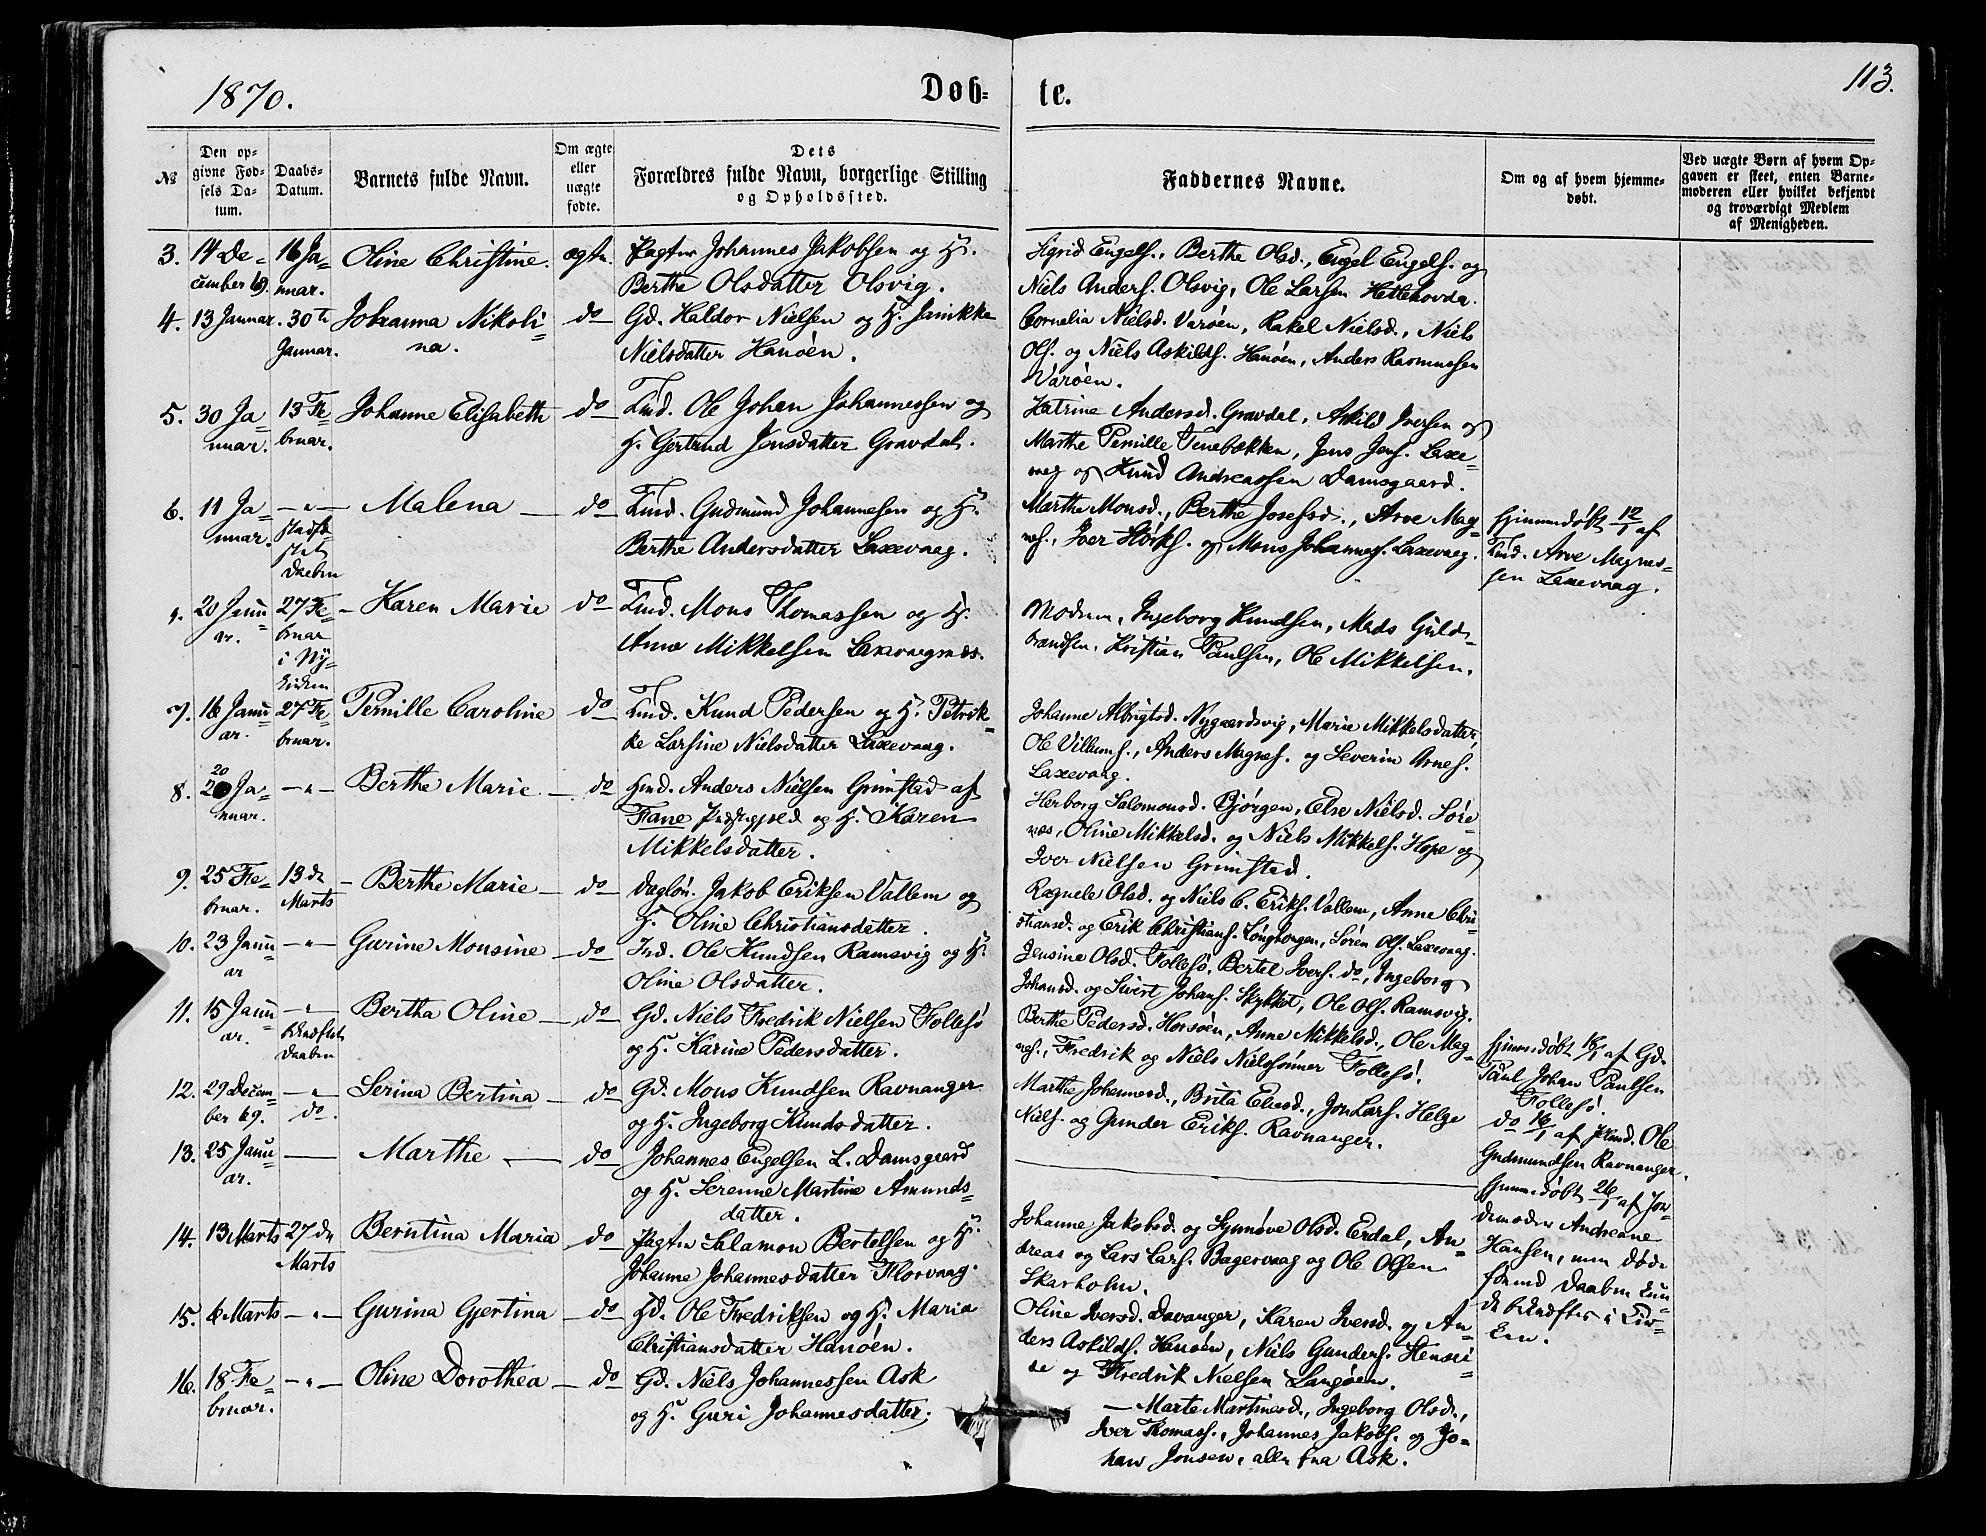 1870.
Døb-
te.
113.
№
Den op-
givne Fød-
sels Da-
tum.
Daabs-
Datum.
Barnets fulde Navn.
Om ægte
eller
uægte
fødte.
Dets
Forældres fulde Navn, borgerlige Stilling
og Opholdssted.
Faddernes Navne.
Om og af hvem hjemme-
døbt.
Ved uægte Børn af hvem Op-
gaven er skeet, enten Barne-
moderen eller hvilket bekjendt
og troværdigt Medlem
af Menigheden.
3. 14 De- 16 Ja- Oline Christine. ægte. Pagter Johannes Jakobsen og H.
cember 69. nuar. Berthe Olsdatter Olsvig.
Sigrid Engels., Berthe Olsd., Engel Engels. og
Niels Anders. Olsvig, Ole Larsen Hettehovda.
4. 13 Januar. 30te Johanna Nikoli- do Gd. Haldor Nielsen og H. Janikke
Januar. na. Nielsdatter Hanøen.
Cornelia Nielsd. Varøen, Rakel Nielsd., Niels
Ols. og Niels Askilds. Hanøen, Anders Rasmussen
Varøen.
5. 30 Ja- 13 Fe- Johanne Elisabeth do Ind. Ole Johan Johannessen og
nuar. bruar. H. Gertrud Jensdatter Gravdal.
Katrine Andersd. Gravdal, Askild Iversen og
Marthe Pernille Tenebækken, Jens Jens. Laxe-
vaag og Knud Andreassen Damsgaard.
6. 11 Ja- — " — Malena — do Ind. Gudmund Johannesen og H.
nuar. stadf-
Daaben Berthe Andersdatter Laxevaag.
Marthe Monsd., Berthe Josefsd., Arve Mag-
nes., Iver Størks. og Mons Johannes. Laxevaag.
Hjemmedøbt 12/1 af
Ind. Arve Magnes-
sen Laxevaag.
20 Janu- 27 Fe- Karen Marie do Ind. Mons Thomassen og H.
ar. bruar
i Ny-
kirken Anna Mikkelsen Laxevaagnæs.
Modren, Ingeborg Knudsen, Mads Guld-
brandsen, Kristian Paulsen, Ole Mikkelsen.
7. 16 Janu- 27 Fe- Pernille Caroline do Ind. Knud Pedersen og H. Petrik-
ar. bruar. ke Larsine Nielsdatter Laxevaag.
Johanne Albrigtsd. Nygaardsvig, Marie Mikkelsdatter,
Ole Villums., Anders Magnes. og Severin Arnes.
Laxevaag.
20
8. 20 Ja- — " — Berthe Marie — do Hmd. Anders Nielsen Grimstad af
nuar. Fane Præstegjeld og H. Karen
Mikkelsdatter.
Herborg Salomonsd. Bjørgen, Else Nielsd. Søre-
næs, Oline Mikkelsd. og Niels Mikkels. Hope og
Iver Nielsen Grimstad.
9. 25 Fe- 13de — Berthe Marie — do Dagløn. Jakob Eriksen Vallem og
bruar. Marts H. Oline Christiansdatter.
Ragnele Olsd. og Niels C. Eriks. Vallem, Anne Chri-
stiansd. og Erik Christians. Lønghorgen, Søren Ols. Laxevaag.
10. 23 Janu- — " — Gurine Monsine — do Ind. Ole Knudsen Ramsvig og H.
ar Oline Olsdatter.
Jensine Olsd. Follesø, Bertel Ivers. do, Ingeborg
Johansd. og Sivert Johans. Skykket, Ole Ols. Ramsvig.
11. 15 Janu- — " — Bertha Oline — do Gd. Niels Fredrik Nielsen Follesø
ar. Daaben og H. Karine Pedersdatter.
Berthe Pedersd. Horsøen, Anne Mikkelsd., Ole Mag-
nes., Fredrik og Niels Nielssønner Follesø.
Hjemmedøbt 16/1 af Gd.
Paul Johan Paulsen
Follesø.
12. 29 Decem- — " — Serina Bertina — do Gd. Mons Knudsen Ravnanger
ber 69. do. og H. Ingeborg Knudsdatter.
Marthe Johannesd., Brita Elesd., Jon Lars. Helge
Niels. og Gunder Eriks. Ravnanger.
do 16/1 af Ole
Gudmundsen Ravnanger.
13. 25 Janu- — Marthe — do Johannes Engelsen L. Damsgaard
ar. og H. Serenne Martine Amunds-
datter.
Hjemmedøbt 26/1 af Jor-
demoder Andreane
Hansen, men døde
forend Daaben kun-
de bekræftes i Kir-
ken.
14. 13 Marts 27de Berntina Maria do Pagter Salamon Bertelsen og H.
Marts Johanne Johannesdatter Florvaag.
Johanne Jakobsd. og Synnøve Olsd. Erdal, An-
dreas og Lars Lars. Bagervaag og Ole Olsen
Skarholm.
15. 6 Marts — " — Gurina Gjertina — do Gd. Ole Fredriksen og H. Maria
Christiansdatter Hanøen.
Oline Iversd. Davanger, Karen Iversd. og An-
ders Askilds. Hanøen, Niels Gunders. Hensei-
de og Fredrik Nielsen Langøen.
16. 18 Fe- — " — Oline Dorothea — do Gd. Niels Johannessen Ask
bruar. og H. Guri Johannesdatter.
— Marte Martinesd., Ingeborg Olsd.,
Iver Thomass., Johannes Jakobs. og Jo-
han Jonsen, alle fra Ask.